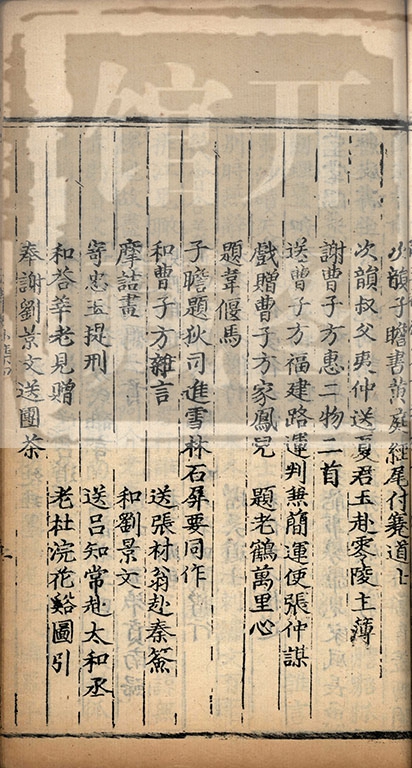 次韻子瞻書黃庭經尾付蹇道士
次韻叔父夷仲送夏君玉赴零陵主薄
謝曹子方惠二物二首
送曹子方福建路運判兼簡運使張仲謀
戲贈曹子方家鳳兒　題老鶴萬里心
題韋偃馬
子瞻題狄司進雪林石屏要同作
和曹子方雜言　送張材翁赴秦簽
摩詰畫　和劉景文
寄忠玉提刑　送呂知常赴太和丞
和荅莘老見贈　老杜浣花谿圖引
奉謝劉景文送團茶